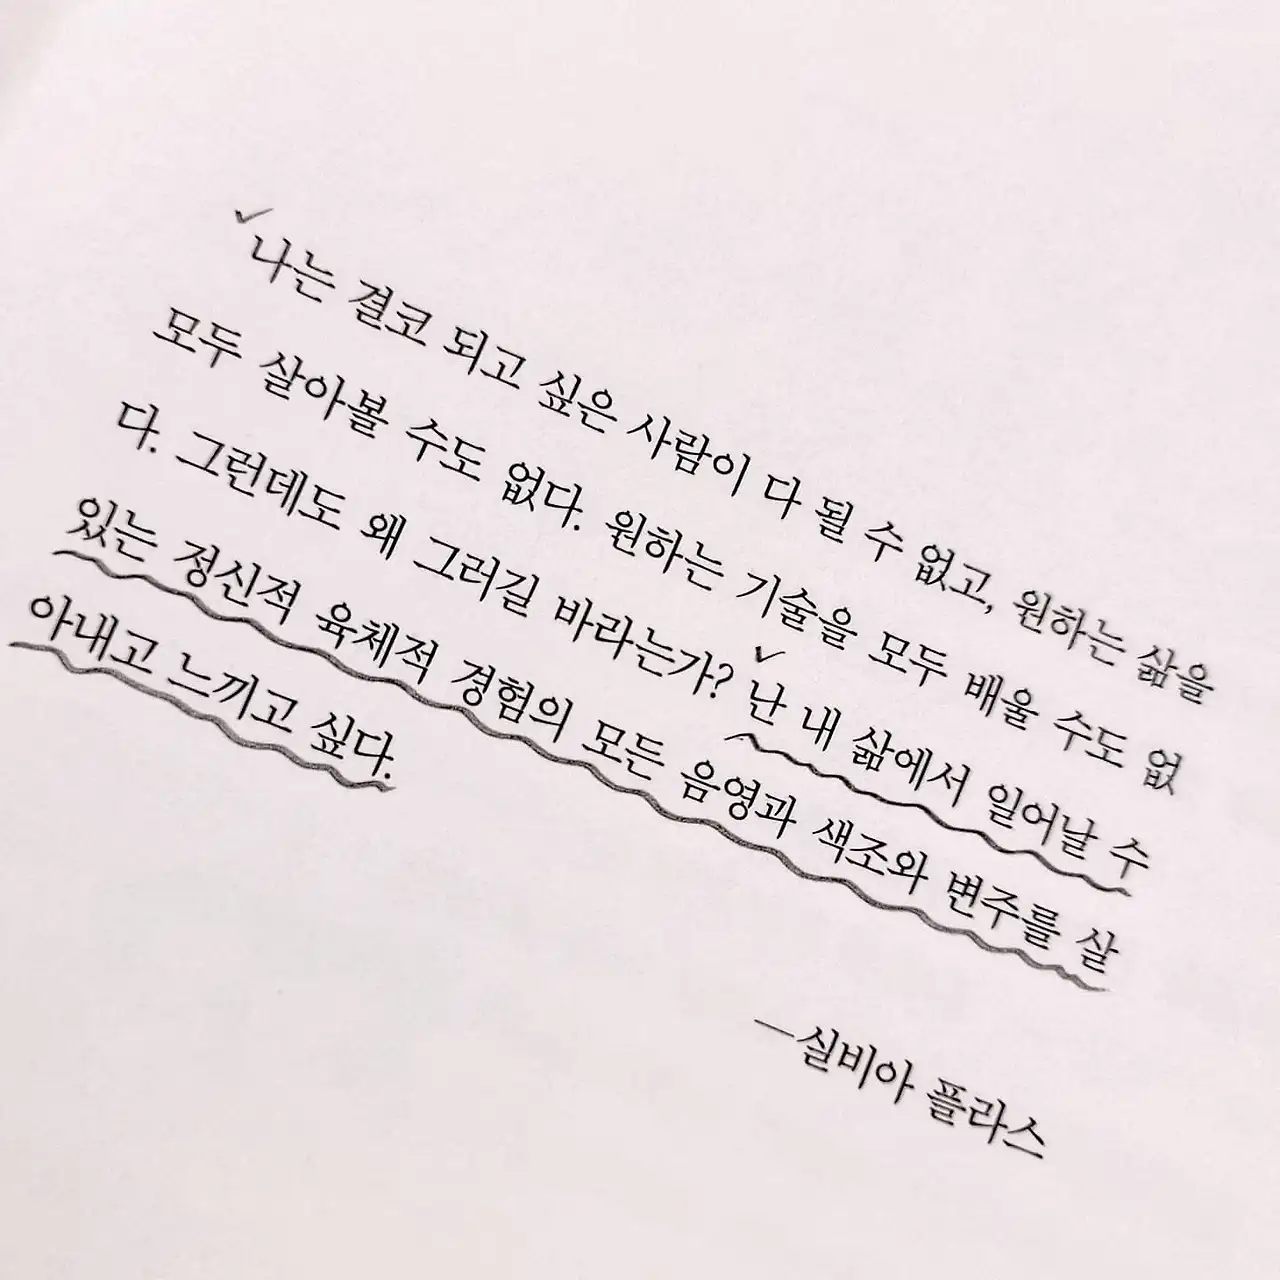 나는 결코 되고 싶은 사람이 다 될 수 없고, 원하는 삶을
모두 살아볼 수도 없다. 원하는 기술을 모두 배울 수도 없
다. 그런데도 왜 그러길 바라는가? 난 내 삶에서 일어날 수
있는 정신적 육체적 경험의 모든 음영과 색조와 변주를 살
아내고 느끼고 싶다.
—실비아 플라스